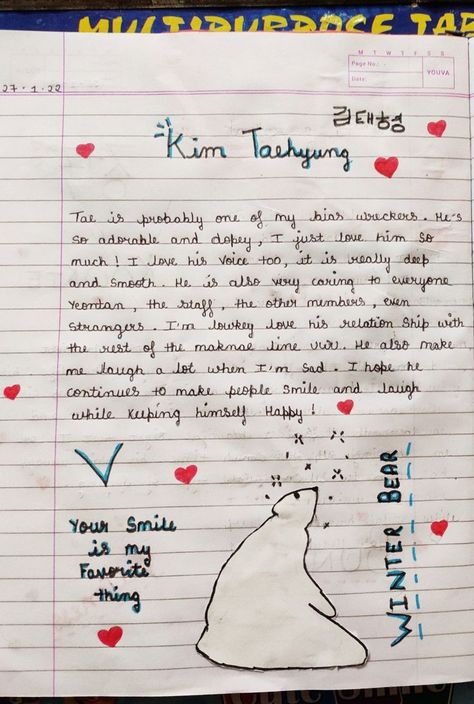 MULTIPURPOSE TAB
M T W T F S S
Page No.:
Date:
YOUVA
27.1.22
김태형
Kim Taehyung
Tae is probably one of my bias wreckers. He's
so adorable and dopey, I just love him so
much! I love his voice too, it is really deep
and smooth. He is also very caring to everyone
Yeontan, the staff, the other members, even
strangers. I'm lowkey love his relation ship with
the rest of the maknae line uwu. He also make
me laugh a lot when I'm sad. I hope he
continues to make people smile and laugh
while keeping himself Happy!
V
Your Smile
is my
Favorite
thing
WINTER BEAR